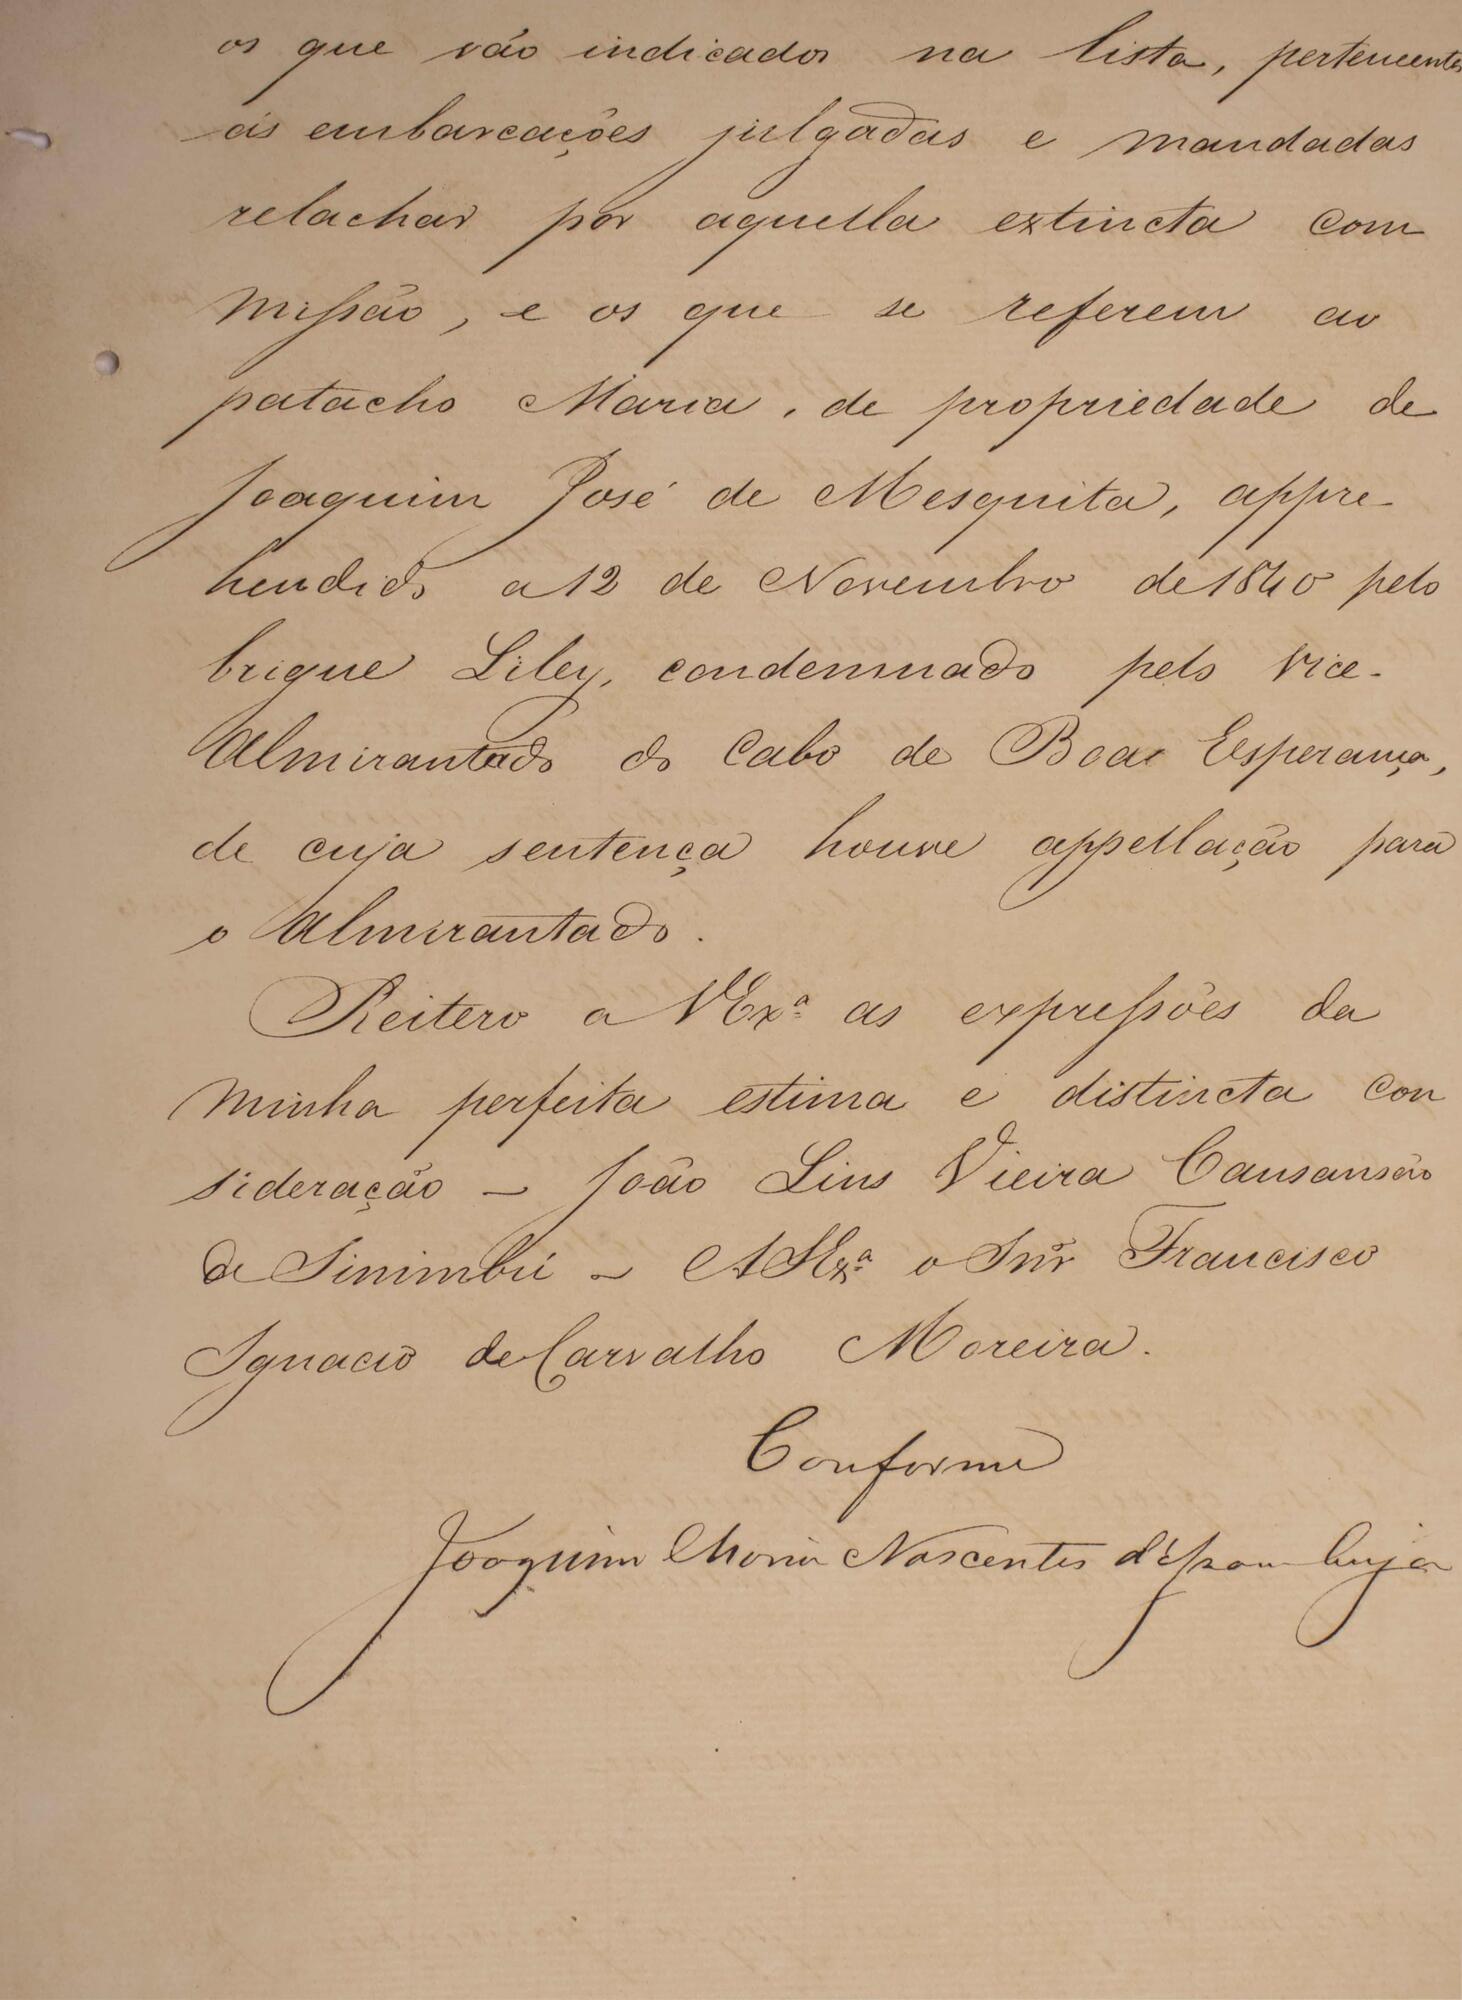 os que vão indicados na lista, pertencentes
ás embarcações julgadas e mandadas
relachar por aquella extincta com
missão, e os que se referem ao
patacho Maria, de propriedade de
Joaquim José de Mesquita, appre-
hendido a 12 de Novembro de 1840 pelo
brigue Liley, condemnado pelo Vice-
Almirantado do Cabo de Boa Esperança,
de cuja sentença houve appellação para
o Almirantado.
Reitero a VExª as expressões da
minha perfeita estima e distincta con
sideração – João Lins Vieira Cansansão
de Sinimbú – A SExª o Snr Francisco
Ignacio de Carvalho Moreira.
Conforme
Joaquim Maria Nascentes d'Azambuja